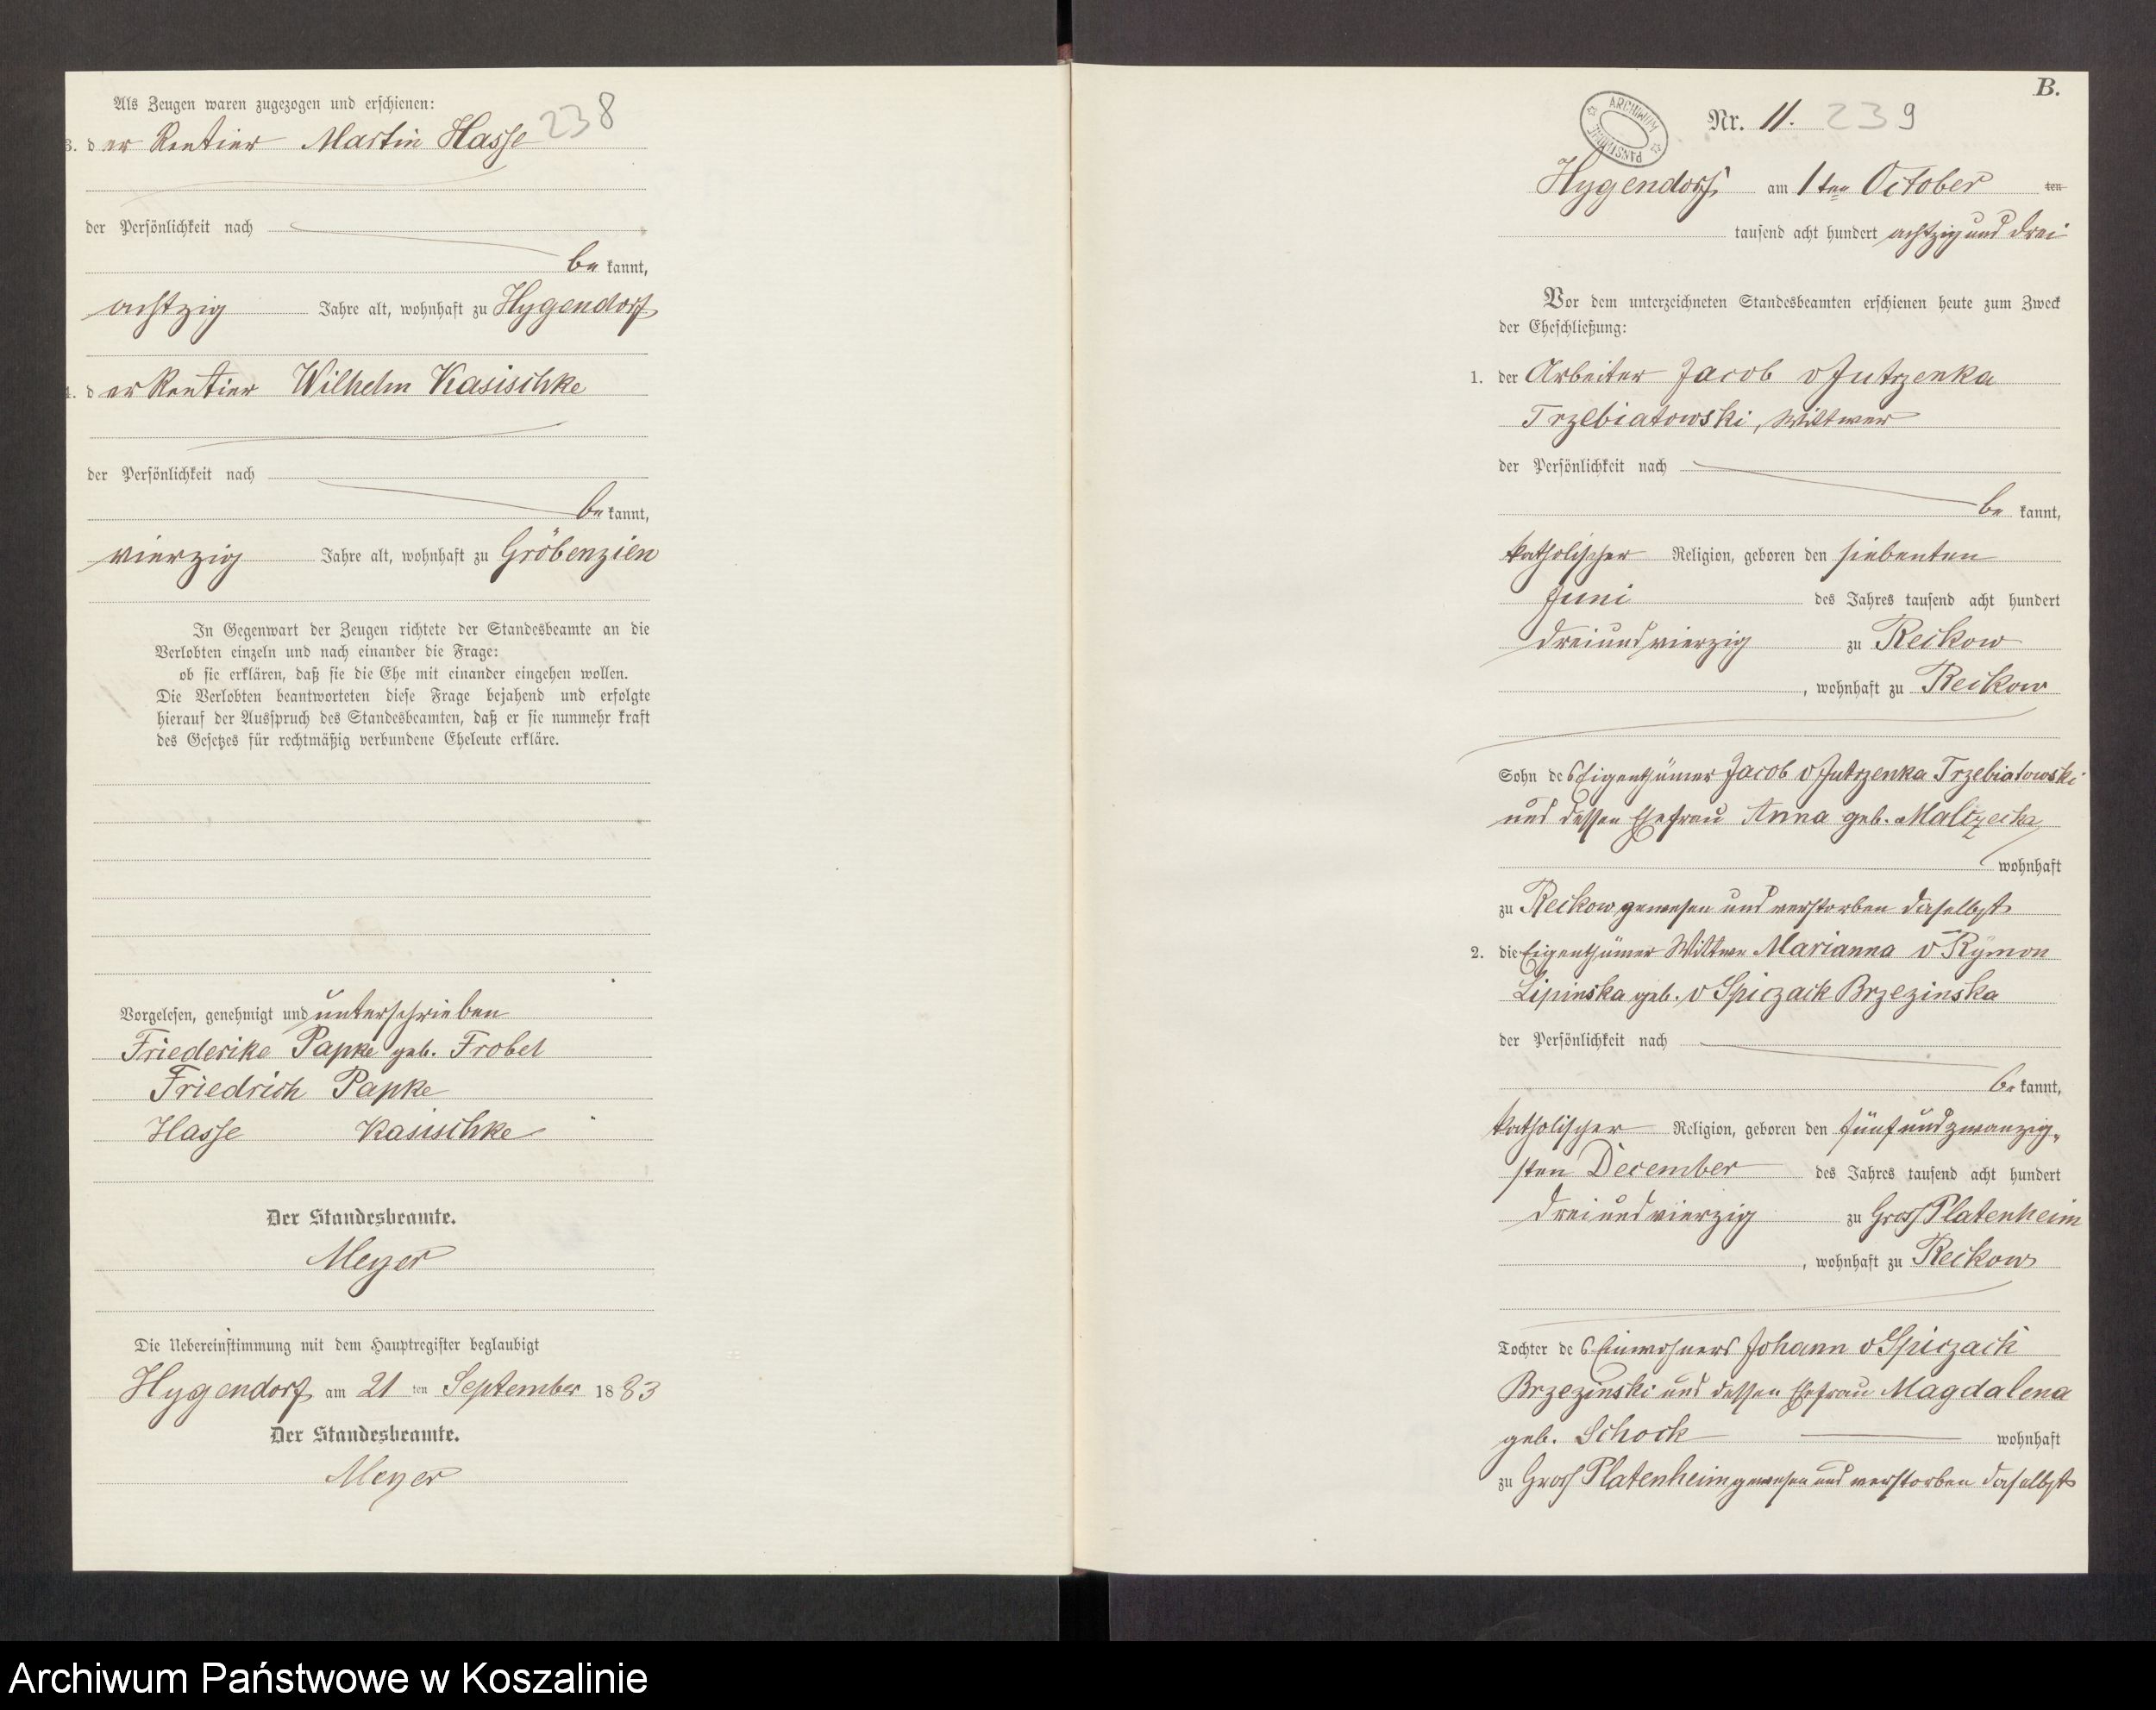 Als Zeugen waren zugezogen und erschienen:
238
3. der Rentier Martin Hasse
der Persönlichkeit nach
bekannt,
achtzig Jahre alt, wohnhaft zu Hygendorf
4. der Rentier Wilhelm Kasischke
der Persönlichkeit nach
bekannt,
vierzig Jahre alt, wohnhaft zu Gröbenzien
In Gegenwart der Zeugen richtete der Standesbeamte an die
Verlobten einzeln und nach einander die Frage:
ob sie erklären, daß sie die Ehe mit einander eingehen wollen.
Die Verlobten beantworteten diese Frage bejahend und erfolgte
hierauf der Ausspruch des Standesbeamten, daß er sie nunmehr kraft
des Gesetzes für rechtmäßig verbundene Eheleute erkläre.
Vorgelesen, genehmigt und unterschrieben
Friederike Papke geb. Frobel
Friedrich Papke
Hasse Kasischke
Der Standesbeamte.
Meyer
Die Uebereinstimmung mit dem Hauptregister beglaubigt
Hygendorf am 21 ten September 1883
Der Standesbeamte.
Meyer
B.
ARCHIWUM PAŃSTWOWE
Nr. 11. 239
Hygendorf am 1ten October ten
tausend acht hundert achtzig und drei
Vor dem unterzeichneten Standesbeamten erschienen heute zum Zweck
der Eheschließung:
1. der Arbeiter Jacob v Jutrzenka
Trzebiatowski, Wittwer
der Persönlichkeit nach
bekannt,
katholischer Religion, geboren den siebenten
Juni des Jahres tausend acht hundert
dreiundvierzig zu Reckow
, wohnhaft zu Reckow
Sohn des Eigenthümer Jacob v Jutrzenka Trzebiatowski
und dessen Ehefrau Anna geb.
wohnhaft
zu Reckow gewesen und verstorben daselbst
2. die Eigenthümer Wittwe Marianna v Rymon
Lipinska geb. v Spiczack Brzezinska
der Persönlichkeit nach
bekannt,
katholischer Religion, geboren den fünfundzwanzig-
sten December des Jahres tausend acht hundert
dreiundvierzig zu Gross Platenheim
, wohnhaft zu Reckow
Tochter des Einwohners Johann v Spiczack
Brzezinski und dessen Ehefrau Magdalena
geb. Schock wohnhaft
zu Gross Platenheim gewesen und verstorben daselbst
Archiwum Państwowe w Koszalinie